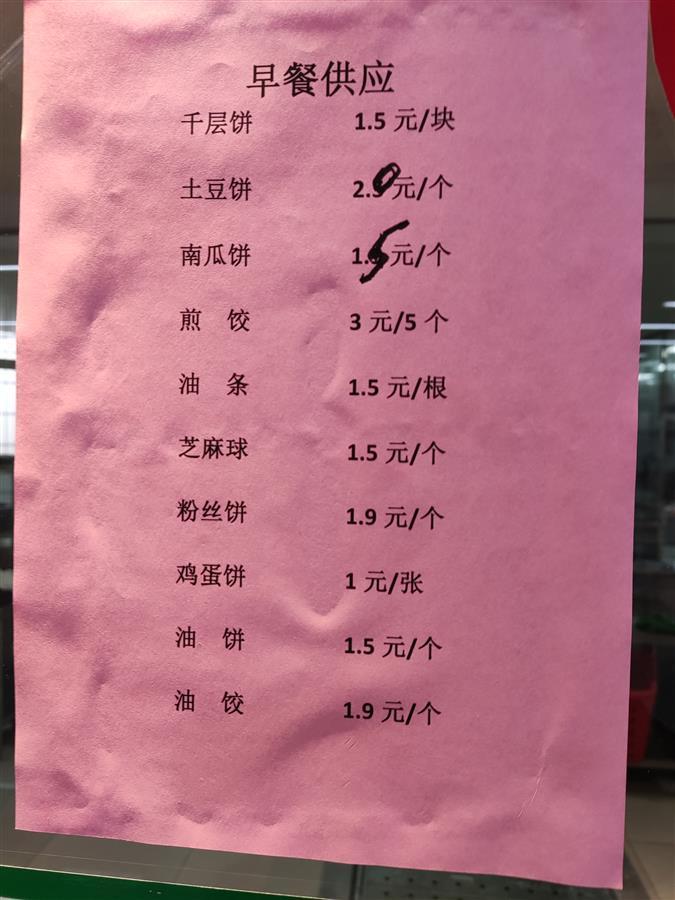 早餐供应
千层饼 1.5 元/块
土豆饼 2.0元/个
南瓜饼 1.5元/个
煎 饺 3 元/5 个
油 条 1.5 元/根
芝麻球 1.5 元/个
粉丝饼 1.9 元/个
鸡蛋饼 1 元/张
油 饼 1.5 元/个
油 饺 1.9 元/个